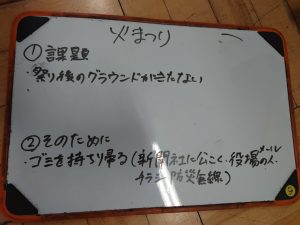 火まつり
① 課題
・祭り後のグラウンドがきたない
② そのために
・ゴミを持ち帰る(新聞社に公こく・役場の人・メール
チラシ 防災無線)